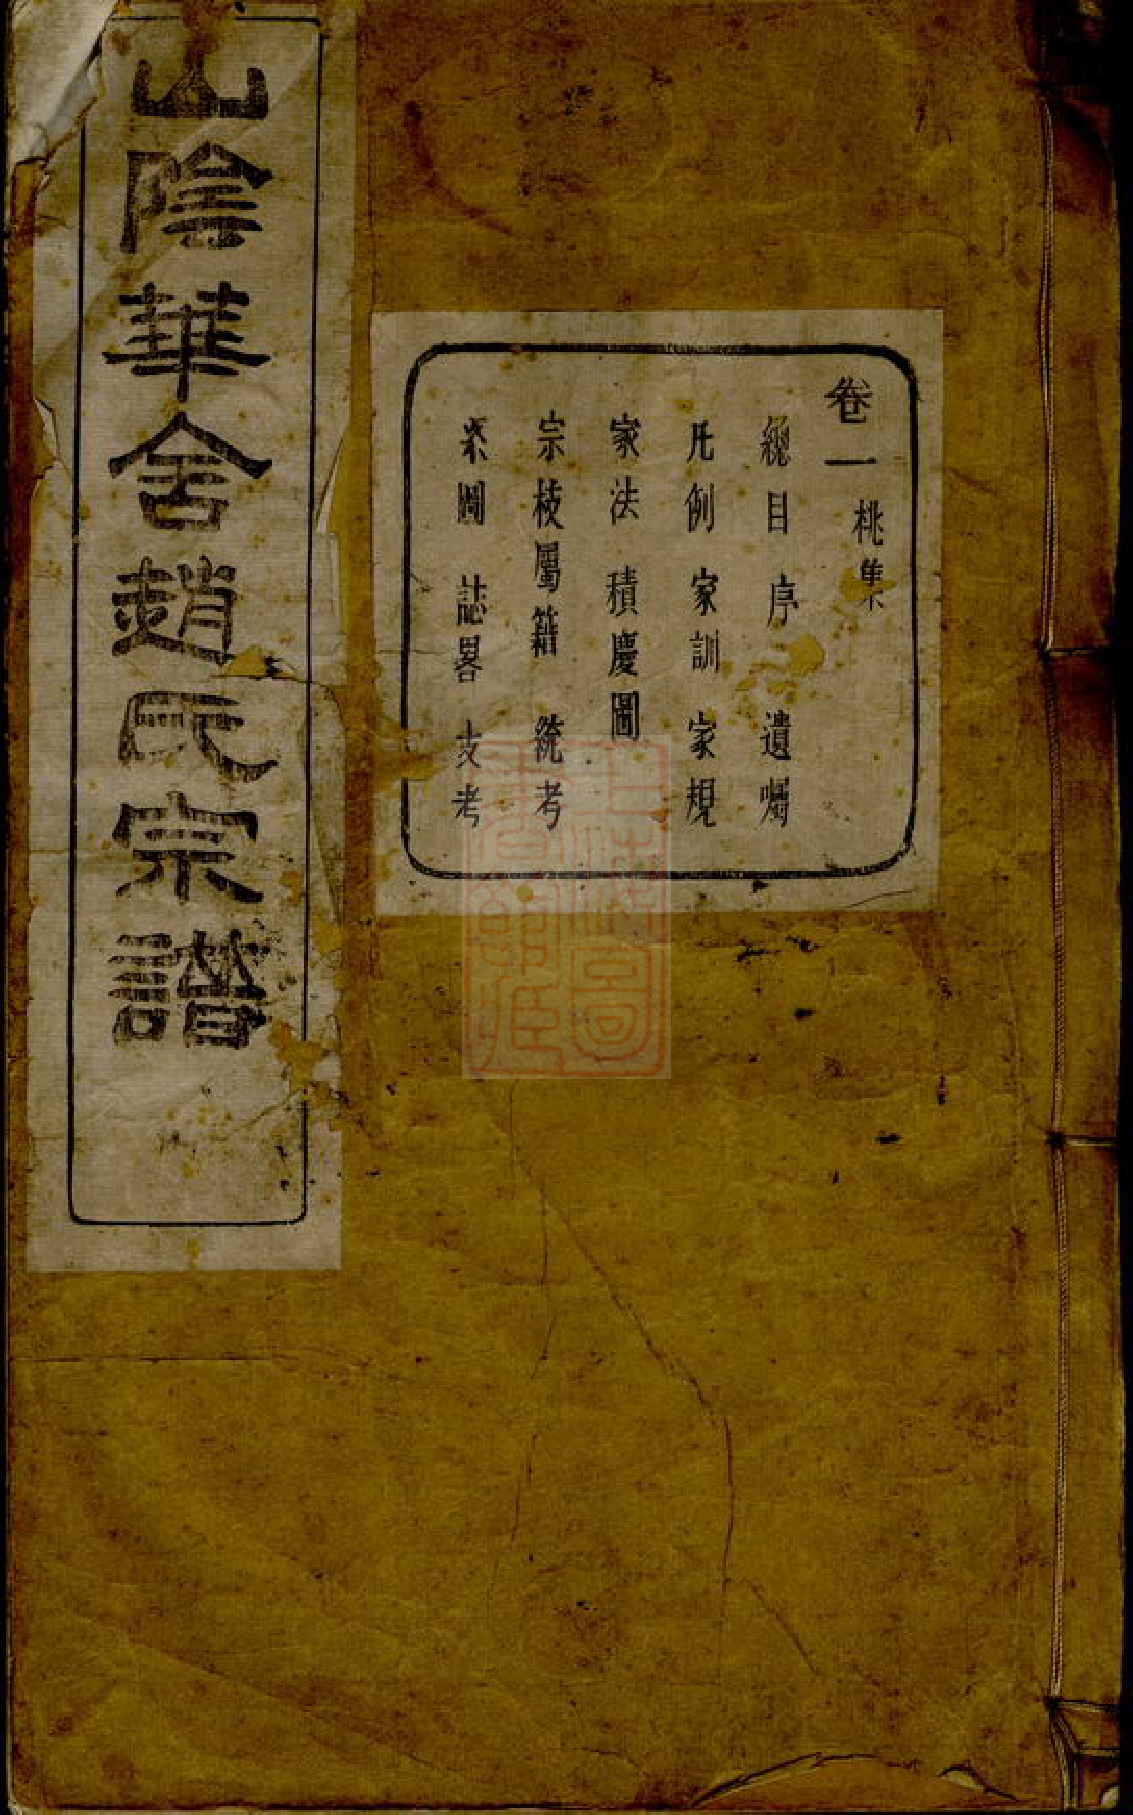 山陰華舍趙氏宗譜
卷一 桃集
總目 序 遺囑
凡例 家訓 家規
家法 積慶圖
宗枝屬籍 統考
系圖 誌畧 支考
上海圖書館藏